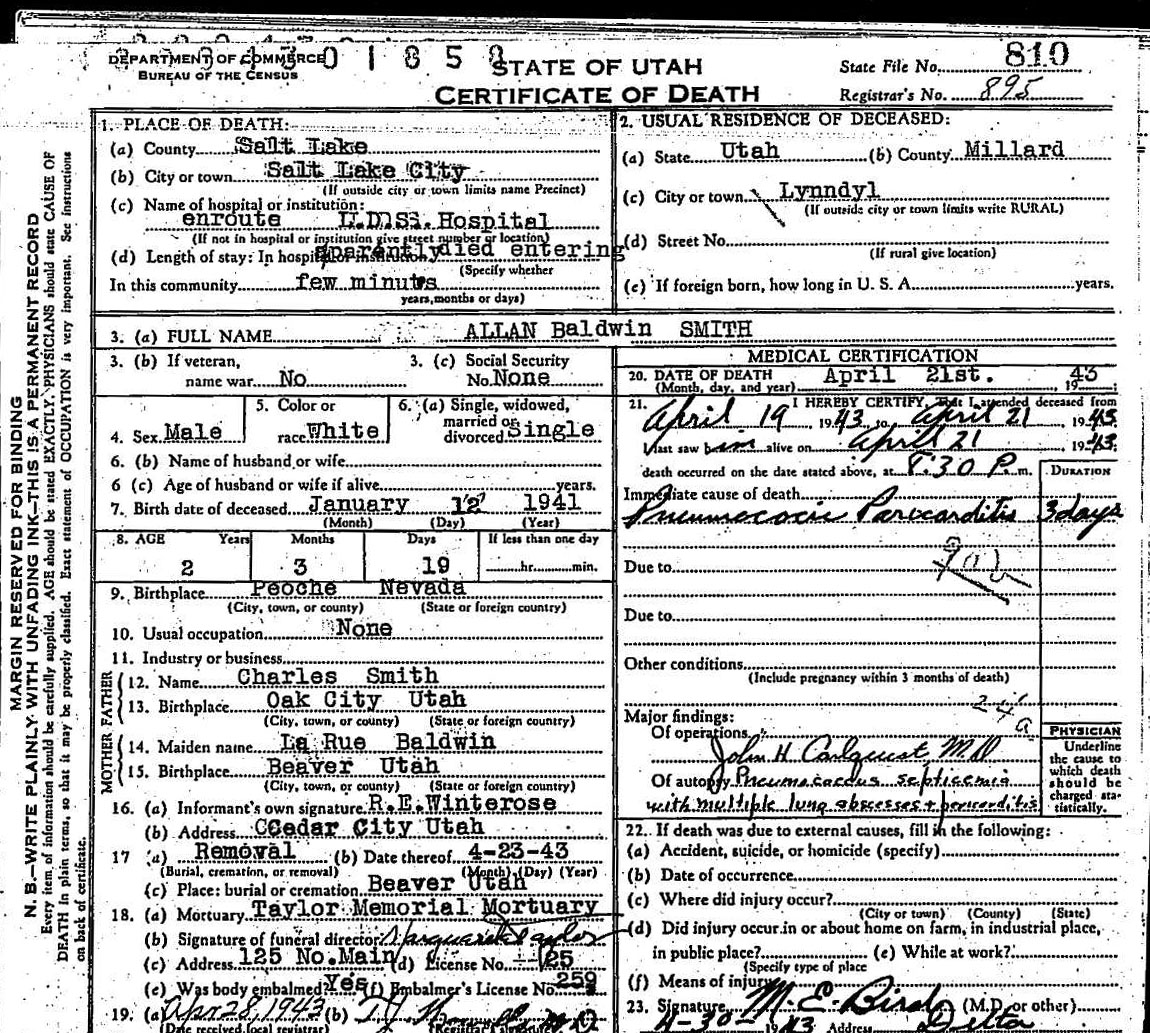 DEPARTMENT OF COMMERCE
BUREAU OF THE CENSUS
0 1 8 5 9
STATE OF UTAH
CERTIFICATE OF DEATH
State File No. 810
Registrar's No. 895
MARGIN RESERVED FOR BINDING
N. B.—WRITE PLAINLY WITH UNFADING INK—THIS IS A PERMANENT RECORD
Every item of information should be carefully supplied. AGE should be stated EXACTLY. PHYSICIANS should state CAUSE OF
DEATH in plain terms, so that it may be properly classified. Exact statement of OCCUPATION is very important. See instructions
on back of certificate.
1. PLACE OF DEATH:
(a) County Salt Lake
(b) City or town Salt Lake City
(If outside city or town limits name Precinct)
(c) Name of hospital or institution:
enroute L.D.S. Hospital
(If not in hospital or institution give street number or location)
(d) Length of stay: In hospital or institution apparently died entering
(Specify whether
In this community few minutes
years, months or days)
2. USUAL RESIDENCE OF DECEASED:
(a) State Utah (b) County Millard
(c) City or town Lynndyl
(If outside city or town limits write RURAL)
(d) Street No.
(If rural give location)
(e) If foreign born, how long in U. S. A. years.
3. (a) FULL NAME ALLAN Baldwin SMITH
3. (b) If veteran, name war No
3. (c) Social Security No. None
4. Sex Male
5. Color or race White
6. (a) Single, widowed, married or divorced Single
6. (b) Name of husband or wife
6 (c) Age of husband or wife if alive years.
7. Birth date of deceased January 12 1941
(Month) (Day) (Year)
8. AGE Years Months Days If less than one day
2 3 19 hr. min.
9. Birthplace Peoche Nevada
(City, town, or county) (State or foreign country)
10. Usual occupation None
11. Industry or business
FATHER
12. Name Charles Smith
13. Birthplace Oak City Utah
(City, town, or county) (State or foreign country)
MOTHER
14. Maiden name La Rue Baldwin
15. Birthplace Beaver Utah
(City, town, or county) (State or foreign country)
16. (a) Informant's own signature R.E.Winterose
(b) Address CCedar City Utah
17 (a) Removal (b) Date thereof 4-23-43
(Burial, cremation, or removal) (Month) (Day) (Year)
(c) Place: burial or cremation Beaver Utah
18. (a) Mortuary Taylor Memorial Mortuary
(b) Signature of funeral director Marguerite Taylor
(c) Address 125 No.Main (d) License No. 125
(e) Was body embalmed? Yes (f) Embalmer's License No. 259
19. (a) Apr 28, 1943 (b)
(Date received local registrar)
MEDICAL CERTIFICATION
20. DATE OF DEATH April 21st. 1943
(Month, day, and year)
21. I HEREBY CERTIFY, That I attended deceased from
April 19 1943 to April 21 1943
I last saw him alive on April 21 1943
death occurred on the date stated above, at 8:30 P. m.
DURATION
Immediate cause of death
Pneumococcic Pericarditis 3 days
Due to
Due to
Other conditions
(Include pregnancy within 3 months of death)
24a
Major findings:
Of operations
John H. Carlquist M.D
Of autopsy Pneumococcus septicemia
with multiple lung abscesses + pericarditis
PHYSICIAN
Underline
the cause to
which death
should be
charged sta-
tistically.
22. If death was due to external causes, fill in the following:
(a) Accident, suicide, or homicide (specify)
(b) Date of occurrence
(c) Where did injury occur?
(City or town) (County) (State)
(d) Did injury occur in or about home on farm, in industrial place,
in public place? (e) While at work?
(Specify type of place
(f) Means of injury
23. Signature M. E. Bird (M.D. or other)
4-30-1943 Address Delta